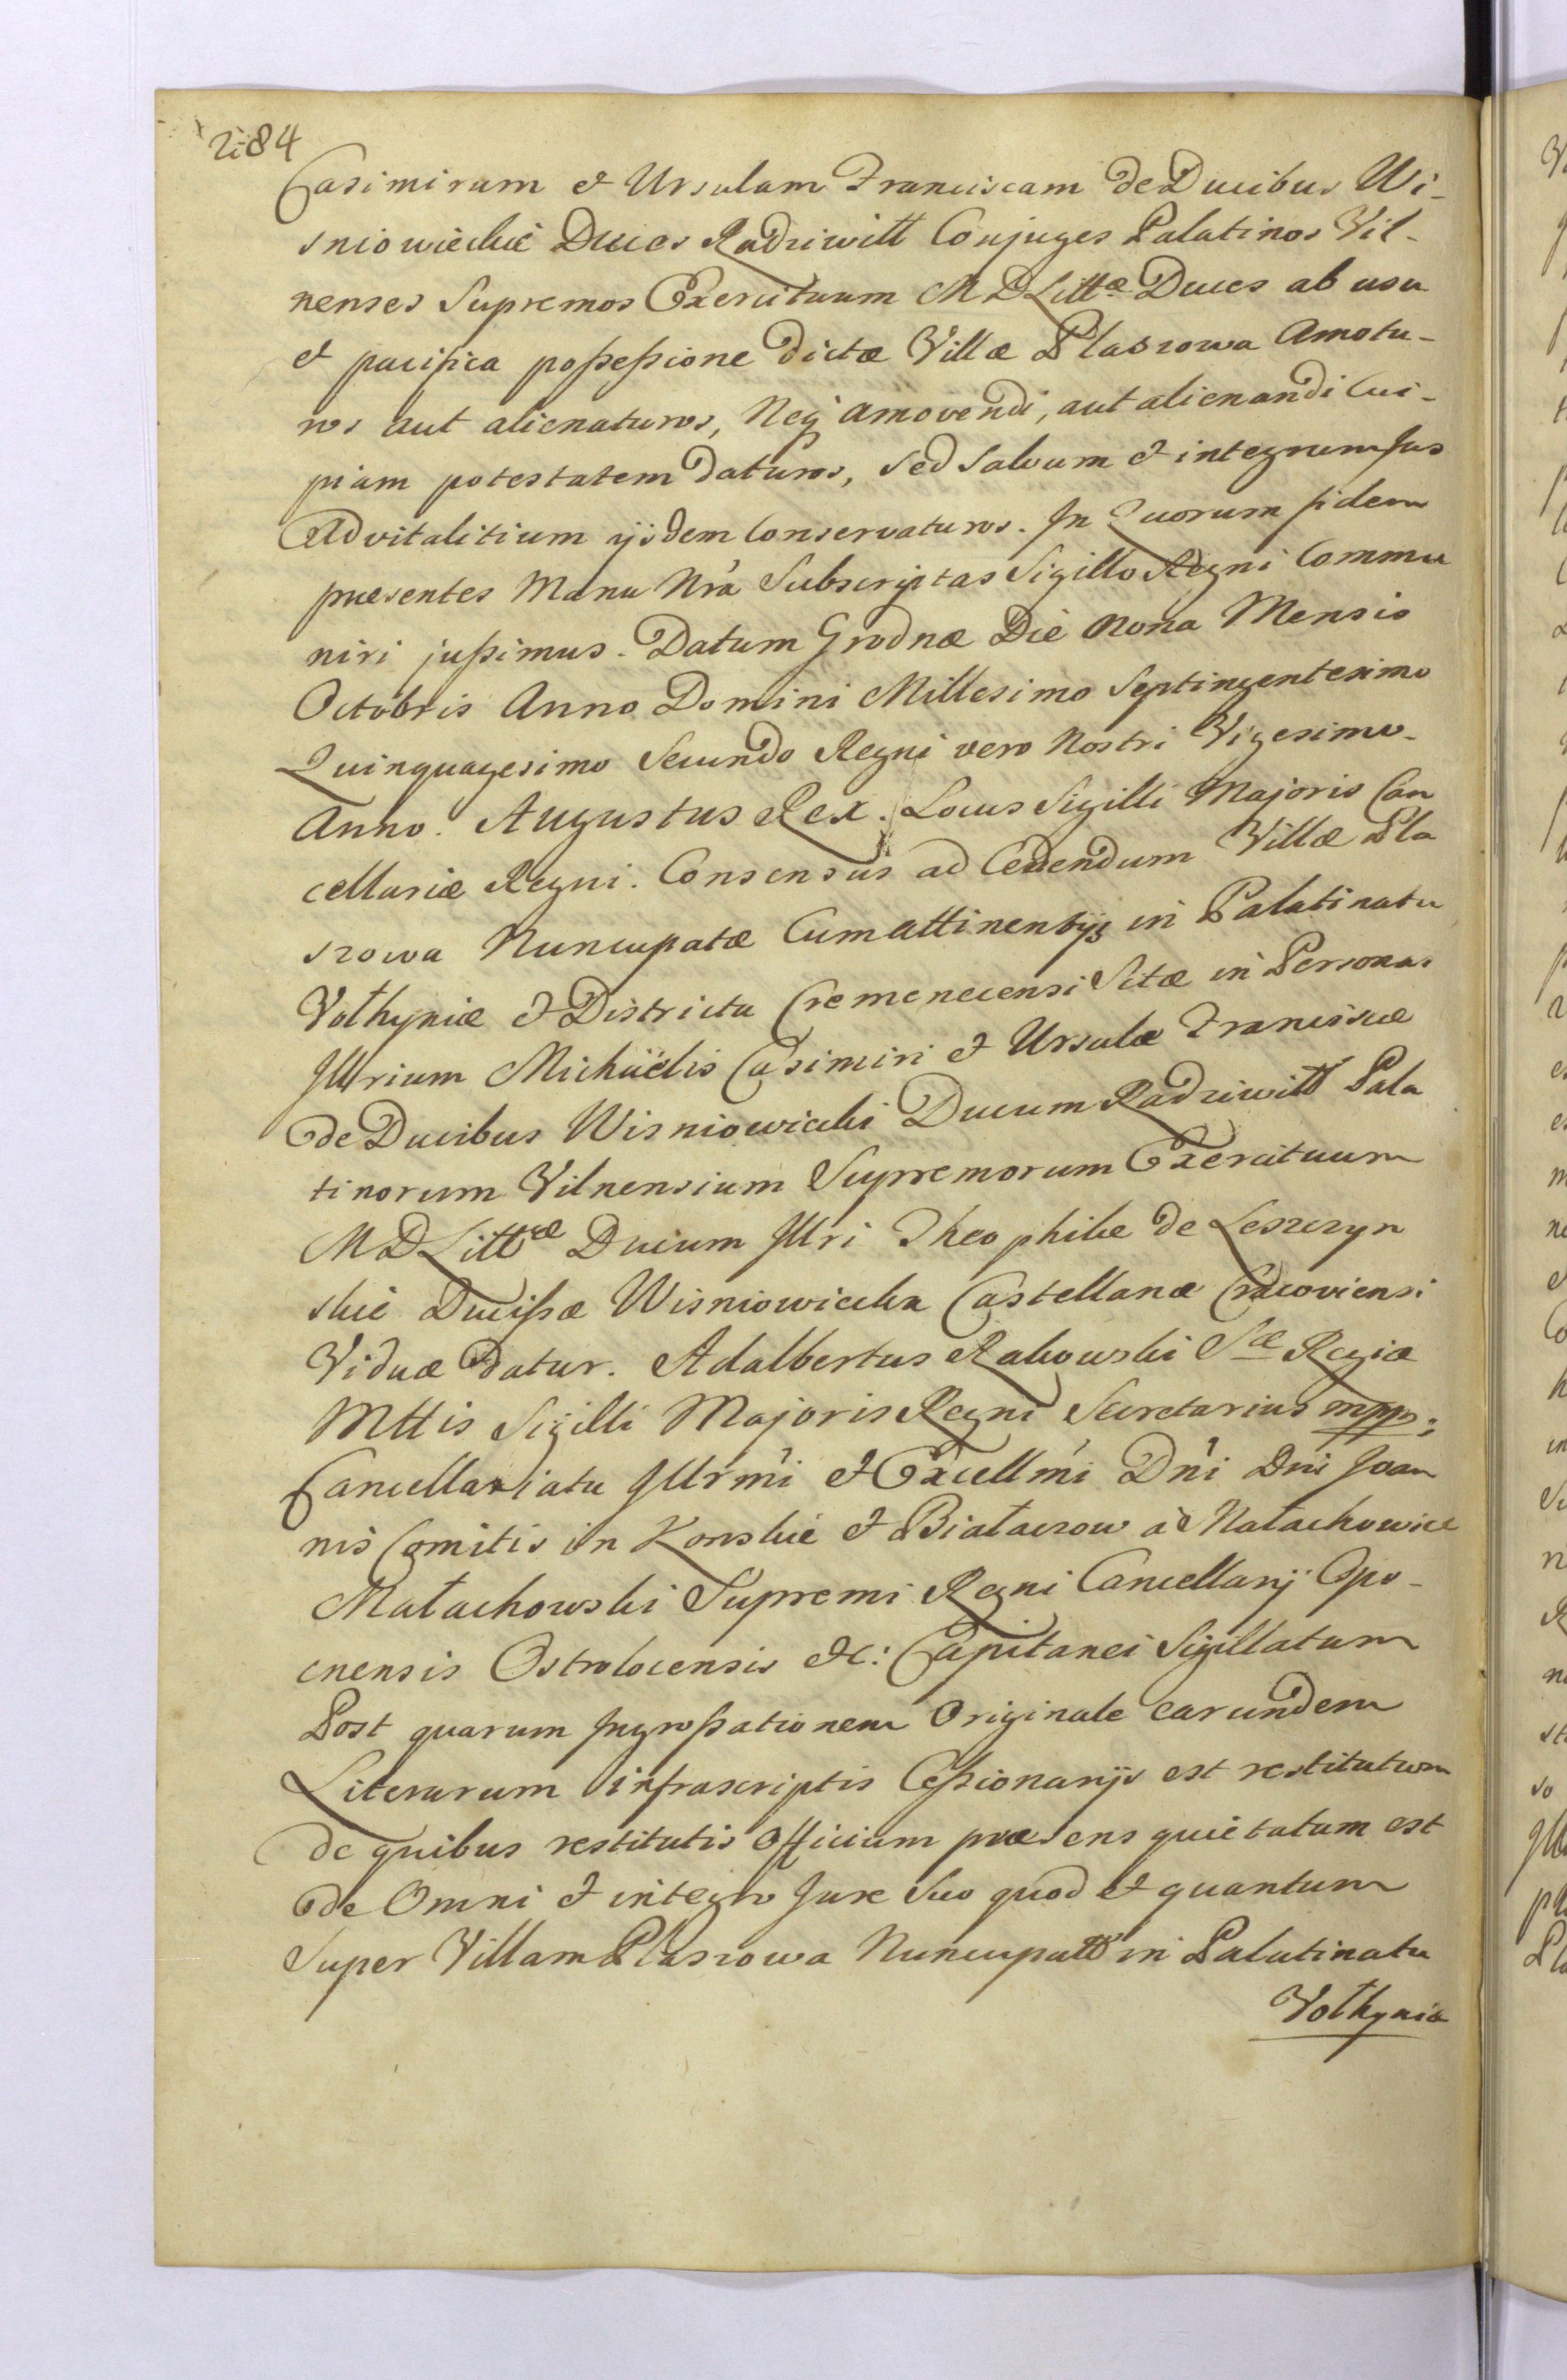 2184
Casimirum et Ursulam Franciscam de Ducibus Wi-
sniowieckie Duces Radziwiłł Conjuges Palatinos Vil-
nenses Supremos Exercituum M D Littæ Duces ab usu
et pacifica possessione dictæ Villæ Plaszowa amotu-
ros aut alienaturos, Neq amovendi, aut alienandi Cui-
piam potestatem daturos, sed Salvum et integrum Jus
Advitalitium ijsdem Conservaturos. In Quorum fidem
præsentes Manu Nrâ Subscriptas Sigillo Regni Commu
niri jussimus. Datum Grodnæ Die Nona Mensis
Octobris Anno Domini Millesimo Septingentesimo
Quinquagesimo Secundo Regni vero Nostri Vigesimo
Anno. Augustus Rex. Locus Sigilli Majoris Can
cellariæ Regni. Consensus ad Cedendum Villæ Pla
szowa Nuncupatæ Cum attinentijs in Palatinatu
Vołhyniæ et Districtu Cremenecensi Sitæ in Personas
Illrium Michaëlis Casimiri et Ursulæ Franciscæ
de Ducibus Wisniowiecki Ducum Radziwiłł Pala
tinorum Vilnensium Supremorum Exercituum
M D Littæ Ducum Illri Theophilæ de Leszczyn
skie Ducissæ Wisniowiecka Castellanæ Cracoviensi
Viduæ datur. Adalbertus Rakowski Sæ Regiæ
Mttis Sigilli Majoris Regni Secretarius mpp:
Cancellariatu Illrmi et Excellmi Dni Dni Joan
nis Comitis in Konskie et Białaczow à Nałachowice
Małachowski Supremi Regni Cancellarij Opo-
cnensis Ostrolocensis etc: Capitanei Sigillatum
Post quarum Ingrossationem Originale earundem
Literarum infrascriptis Cessionarijs est restitutum
de quibus restitutis Officium præsens quietatum est
de Omni et integro Jure Suo quod et quantum
Super Villam Plaszowa Nuncupatt in Palatinatu
Vołhyniæ